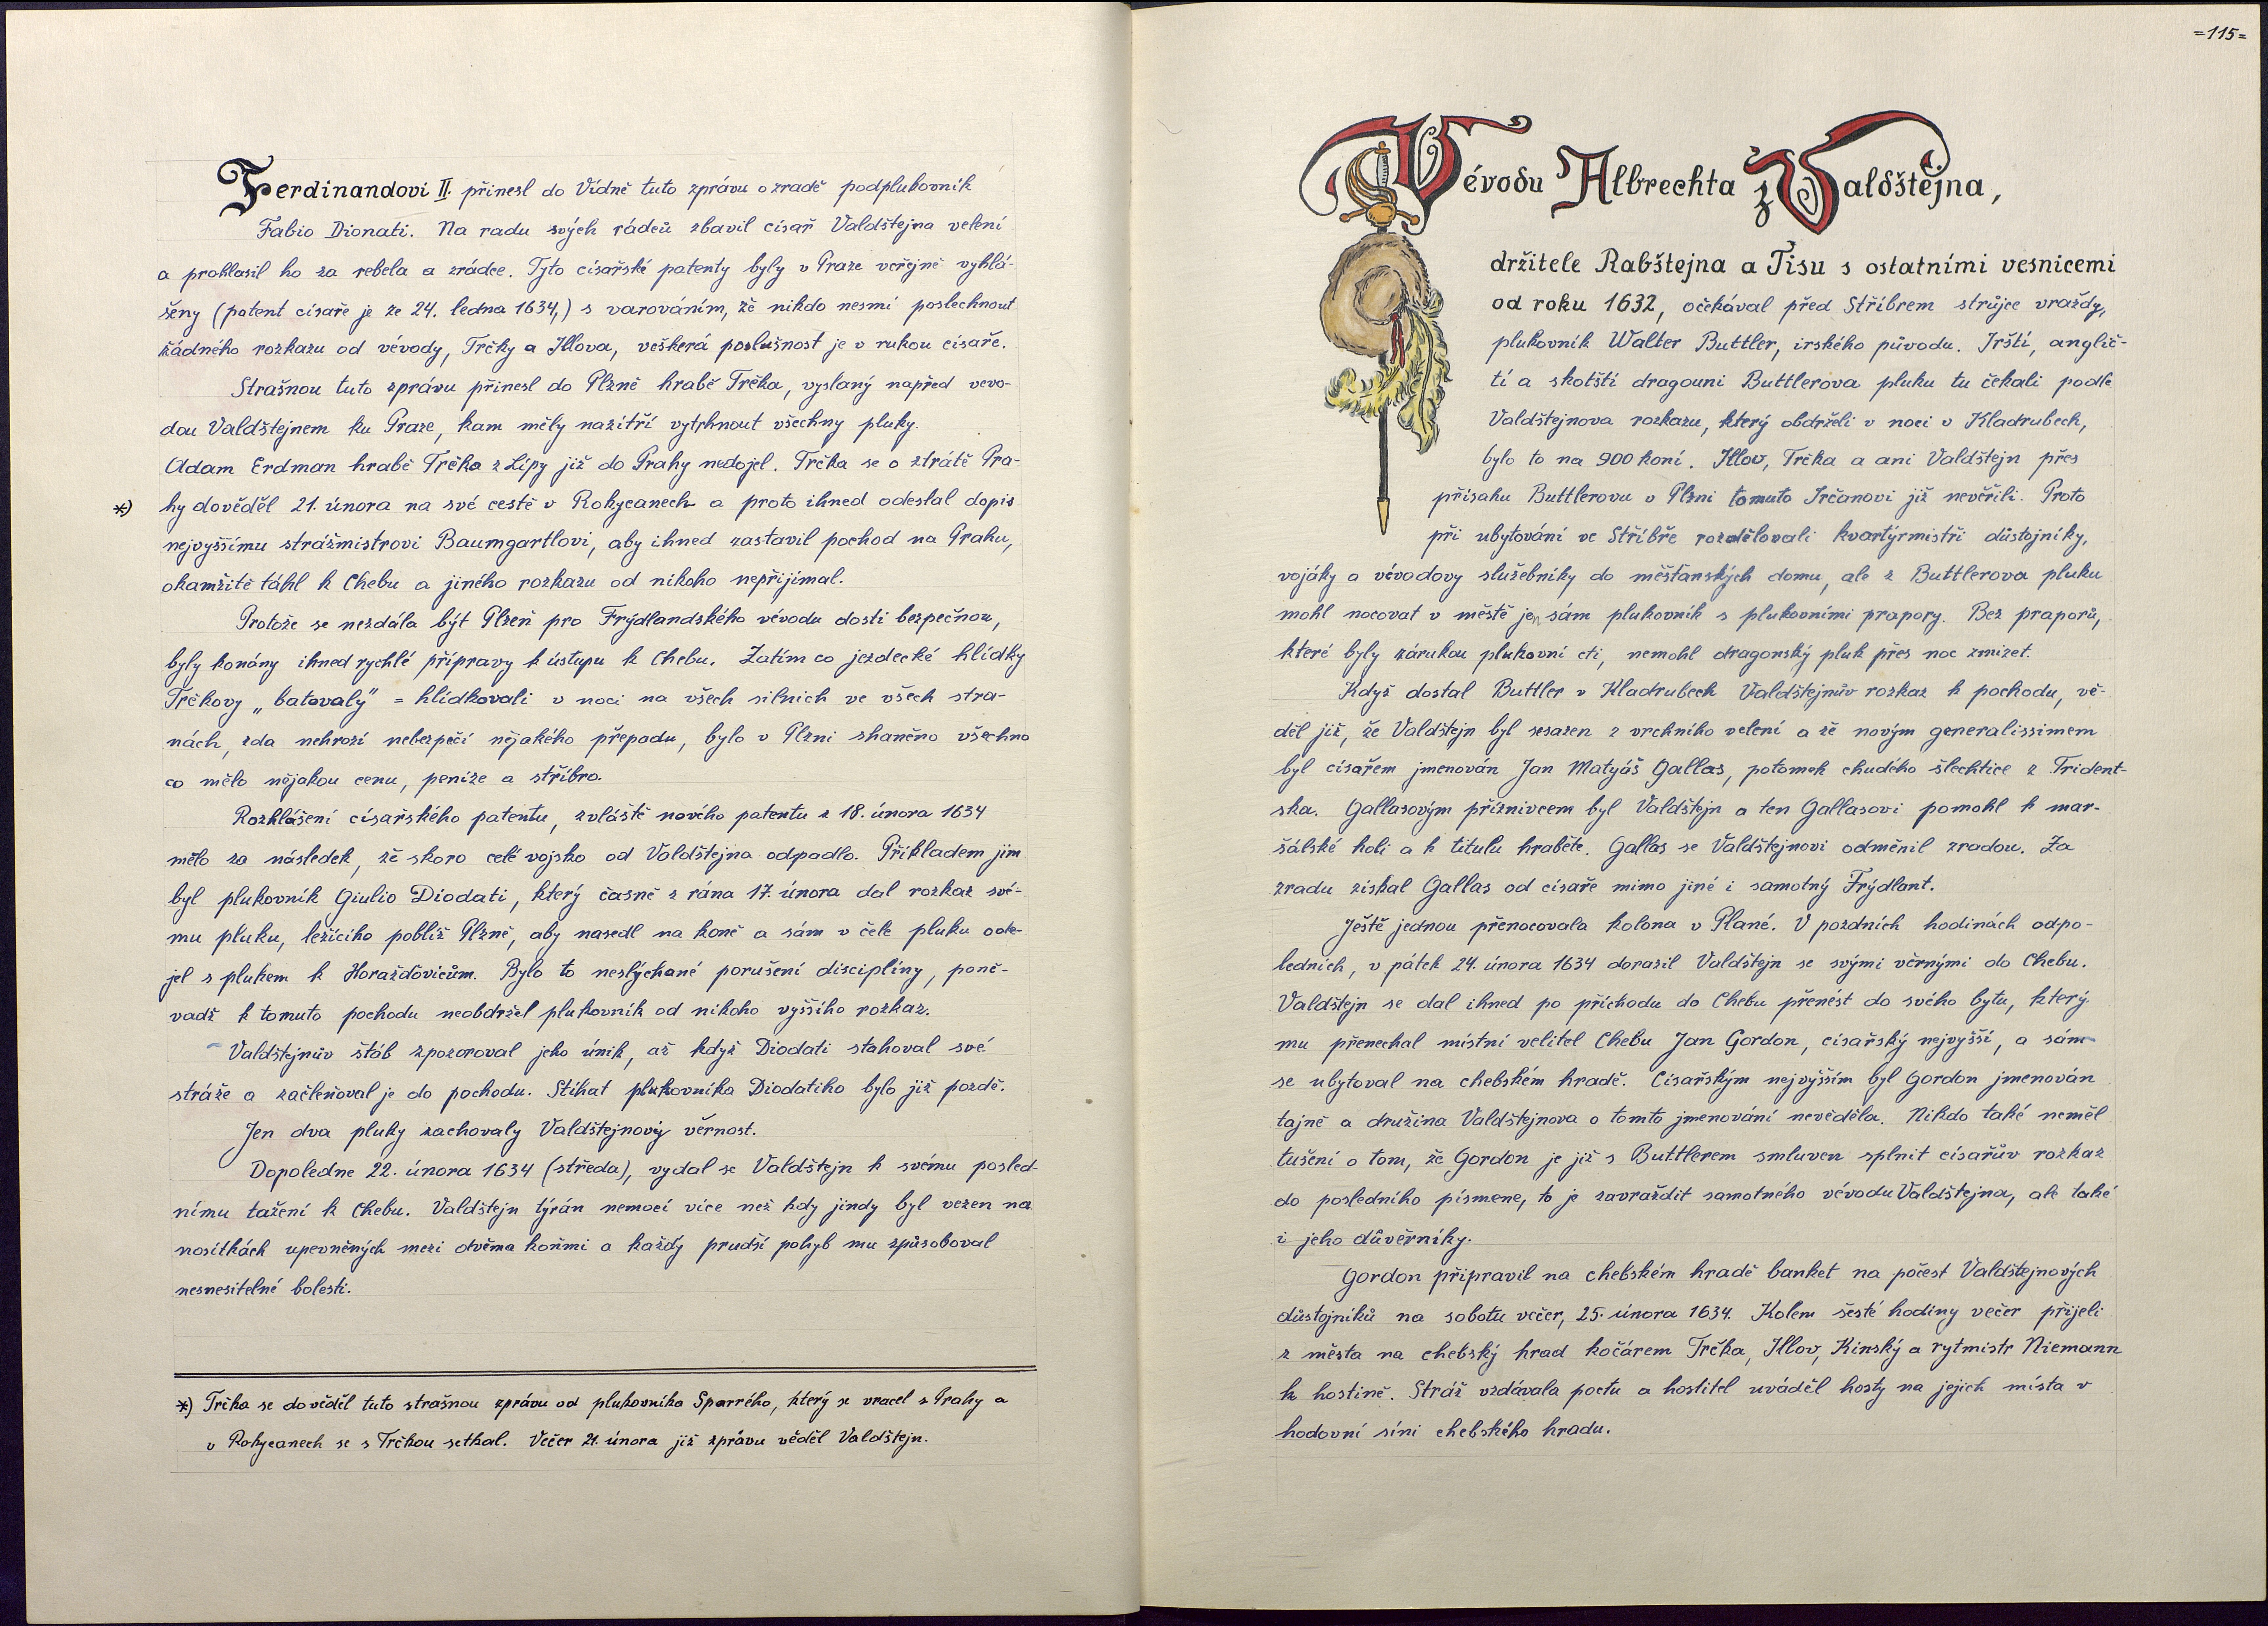 Ferdinandovi II. přinesl do Vídně tuto zprávu o zradě podplukovník
Fabio Dionati. Na radu svých rádců zbavil císař Valdštejna velení
a prohlasil ho za rebela a zrádce. Tyto císařské patenty byly v Praze veřejně vyhlá-
šeny (patent císaře je ze 24. ledna 1634,) s varováním, že nikdo nesmí poslechnout
žádného rozkazu od vévody, Trčky a Illova, veškerá poslušnost je v rukou císaře.
Strašnou tuto zprávu přinesl do Plzně hrabě Trčka, vyslaný napřed vevo-
dou Valdštejnem ku Praze, kam měly nazítří vytrhnout všechny pluky.
Adam Erdman hrabě Trčka z Lípy již do Prahy nedojel. Trčka se o ztrátě Pra-
*) hy dověděl 21. února na své cestě v Rokycanech a proto ihned odeslal dopis
nejvyššímu strážmistrovi Baumgartlovi, aby ihned zastavil pochod na Prahu,
okamžitě táhl k Chebu a jiného rozkazu od nikoho nepřijímal.
Protože se nezdála být Plzeň pro Frýdlandského vévodu dosti bezpečnou,
byly konány ihned rychlé přípravy k ústupu k Chebu. Zatím co jezdecké hlídky
Trčkovy „batovaly" = hlídkovali v noci na všech silnich ve všech stra-
nách, zda nehrozí nebezpečí nějakého přepadu, bylo v Plzni sháněno všechno
co mělo nějakou cenu, peníze a stříbro.
Rozhlášení císařského patentu, zvláště nového patentu z 18. února 1634
mělo za následek, že skoro celé vojsko od Valdštejna odpadlo. Příkladem jim
byl plukovník Giulio Diodati, který časně z rána 17. února dal rozkaz své-
mu pluku, ležícího poblíž Plzně, aby nasedl na koně a sám v čele pluku ode-
jel s plukem k Horažďovicům. Bylo to neslýchané porušení disciplíny, poně-
vadž k tomuto pochodu neobdržel plukovník od nikoho vyššího rozkaz.
Valdštejnův štáb zpozoroval jeho únik, až když Diodati stahoval své
stráže a začleňoval je do pochodu. Stíhat plukovníka Diodatiho bylo již pozdě.
Jen dva pluky zachovaly Valdštejnovi věrnost.
Dopoledne 22. února 1634 (středa), vydal se Valdštejn k svému posled-
nímu tažení k Chebu. Valdštejn týrán nemocí více než kdy jindy byl vezen na
nosítkách upevněných mezi dvěma koňmi a každý prudší pohyb mu způsoboval
nesnesitelné bolesti.
*) Trčka se dověděl tuto strašnou zprávu od plukovníka Sparrého, který se vracel z Prahy a
v Rokycanech se s Trčkou setkal. Večer 21. února již zprávu věděl Valdštejn.
=115=
Vévodu Albrechta z Valdštejna,
držitele Rabštejna a Tisu s ostatními vesnicemi
od roku 1632, očekával před Stříbrem strůjce vraždy,
plukovník Walter Buttler, irského původu. Irští, anglič-
tí a skotští dragouni Buttlerova pluku tu čekali podle
Valdštejnova rozkazu, který obdrželi v noci v Kladrubech,
bylo to na 900 koní. Illov, Trčka a ani Valdštejn přes
přísahu Buttlerovu v Plzni tomuto Irčanovi již nevěřili. Proto
při ubytování ve Stříbře rozdělovali kvartýrmistři důstojníky,
vojáky a vévodovy služebníky do měšťanských domu, ale z Buttlerova pluku
mohl nocovat v městě jen sám plukovník s plukovními prapory. Bez praporů,
které byly zárukou plukovní cti, nemohl dragonský pluk přes noc zmizet.
Když dostal Buttler v Kladrubech Valdštejnův rozkaz k pochodu, vě-
děl již, že Valdštejn byl sesazen z vrchního velení a že novým generalissimem
byl císařem jmenován Jan Matyáš Gallas, potomek chudého šlechtice z Trident-
ska. Gallasovým příznivcem byl Valdštejn a ten Gallasovi pomohl k mar-
šálské holi a k titulu hraběte. Gallas se Valdštejnovi odměnil zradou. Za
zradu získal Gallas od císaře mimo jiné i samotný Frýdlant.
Ještě jednou přenocovala kolona v Plané. V pozdních hodinách odpo-
ledních, v pátek 24. února 1634 dorazil Valdštejn se svými věrnými do Chebu.
Valdštejn se dal ihned po příchodu do Chebu přenést do svého bytu, který
mu přenechal místní velitel Chebu Jan Gordon, císařský nejvyšší, a sám
se ubytoval na chebském hradě. Císařským nejvyšším byl Gordon jmenován
tajně a družina Valdštejnova o tomto jmenování nevěděla. Nikdo také neměl
tušení o tom, že Gordon je již s Buttlerem smluven splnit císařův rozkaz
do posledního písmene, to je zavraždit samotného vévodu Valdštejna, ale také
i jeho důvěrníky.
Gordon připravil na chebském hradě banket na počest Valdštejnových
důstojníků na sobotu večer, 25. února 1634. Kolem šesté hodiny večer přijeli
z města na chebský hrad kočárem Trčka, Illov, Kinský a rytmistr Niemann
k hostině. Stráž vzdávala poctu a hostitel uváděl hosty na jejich místa v
hodovní síni chebského hradu.